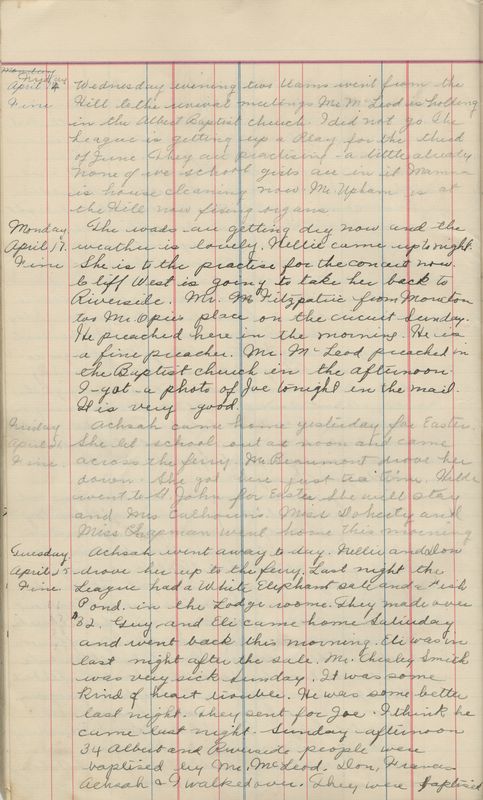 Monday
Friday
April 14 Wednesday evening two teams went from the
Fine Hill to the revival meetings Mr McLeod is holding
in the Albert Baptist church. I did not go. The
League is getting up a Play for the third
of June. They are practising a little already
None of we school girls are in it. Mamma
is house cleaning now. Mr Upham is at
the Hill now fixing organs
Monday The roads are getting dry now and the
April 17. weather is lovely. Nellie came up to night.
Fine She is to the practise for the concert now.
Cliff West is going to take her back to
Riverside. Mr. McFitzpatric from Moncton
took Mr. Opies place on the circuit Sunday.
He preached here in the morning. He is
a fine preacher. Mr. McLeod preached in
the Baptist church in the afternoon.
I got a photo of Joe tonight in the mail.
It is very good.
Friday Achsah came home yesterday for Easter.
April 21 She let school out at noon and came
Fine. across the ferry. Mr Beaumont drove her
down. She got here just tea time. Hilda
went to St. John for Easter. She will stay
and Mrs Calhoun's. Miss Doherty and
Miss Chapman went home this morning
Tuesday Achsah went away to day. Nellie and Don
April 25 drove her up to the ferry. Last night the
Fine League had a White Elephant sale and a Fish
Pond. in the Lodge rooms. They made over
$32. Guy and Eli came home Saturday
and went back this morning. Eli was in
last night after the sale. Mr. Chesley Smith
was very sick Sunday. It was some
kind of heart trouble. He was some better
last night. They sent for Joe. I think he
came last night. Sunday afternoon
34 Albert and Riverside people were
baptised by Mr. McLeod. Don, Frances
Achsah & I walked over. They were baptised